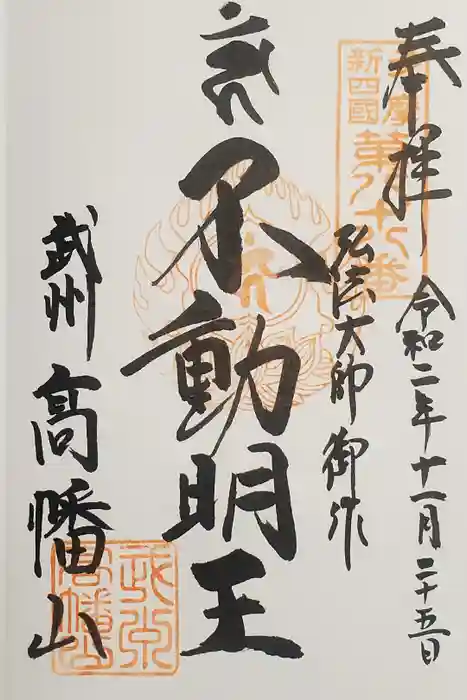 奉拝
令和二年十一月二十五日
弘法大師御作
不動明王
武州
高幡山
新四國
第八十八番